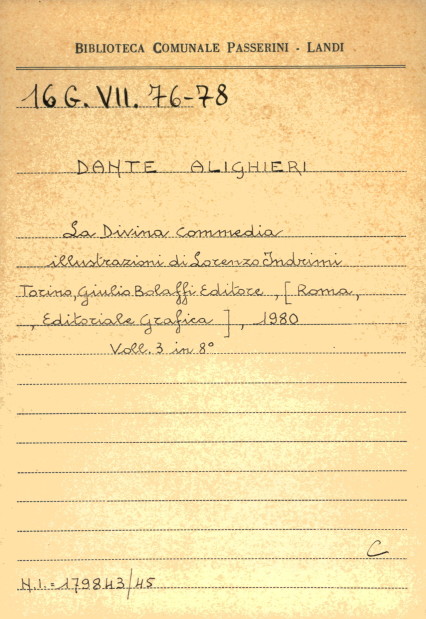 BIBLIOTECA COMUNALE PASSERINI - LANDI
16 G. VII. 76-78
DANTE ALIGHIERI
La Divina Commedia
illustrazioni di Lorenzo Indrimi
Torino, Giulio Bolaffi Editore, [Roma,
, Editoriale Grafica], 1980
Voll. 3 in 8°
C
N.I. = 179843/45